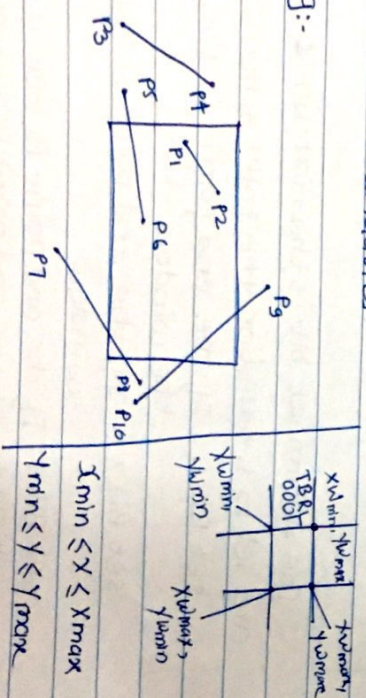 g:-
P3
P4
P5
P1
P2
P6
P7
P9
P8
P10
xwmin, ywmax
TBRL
0001
xwmin
ywmin
xwmax,
ywmin
Xmin ≤ X ≤ Xmax
Ymin ≤ Y ≤ Ymax